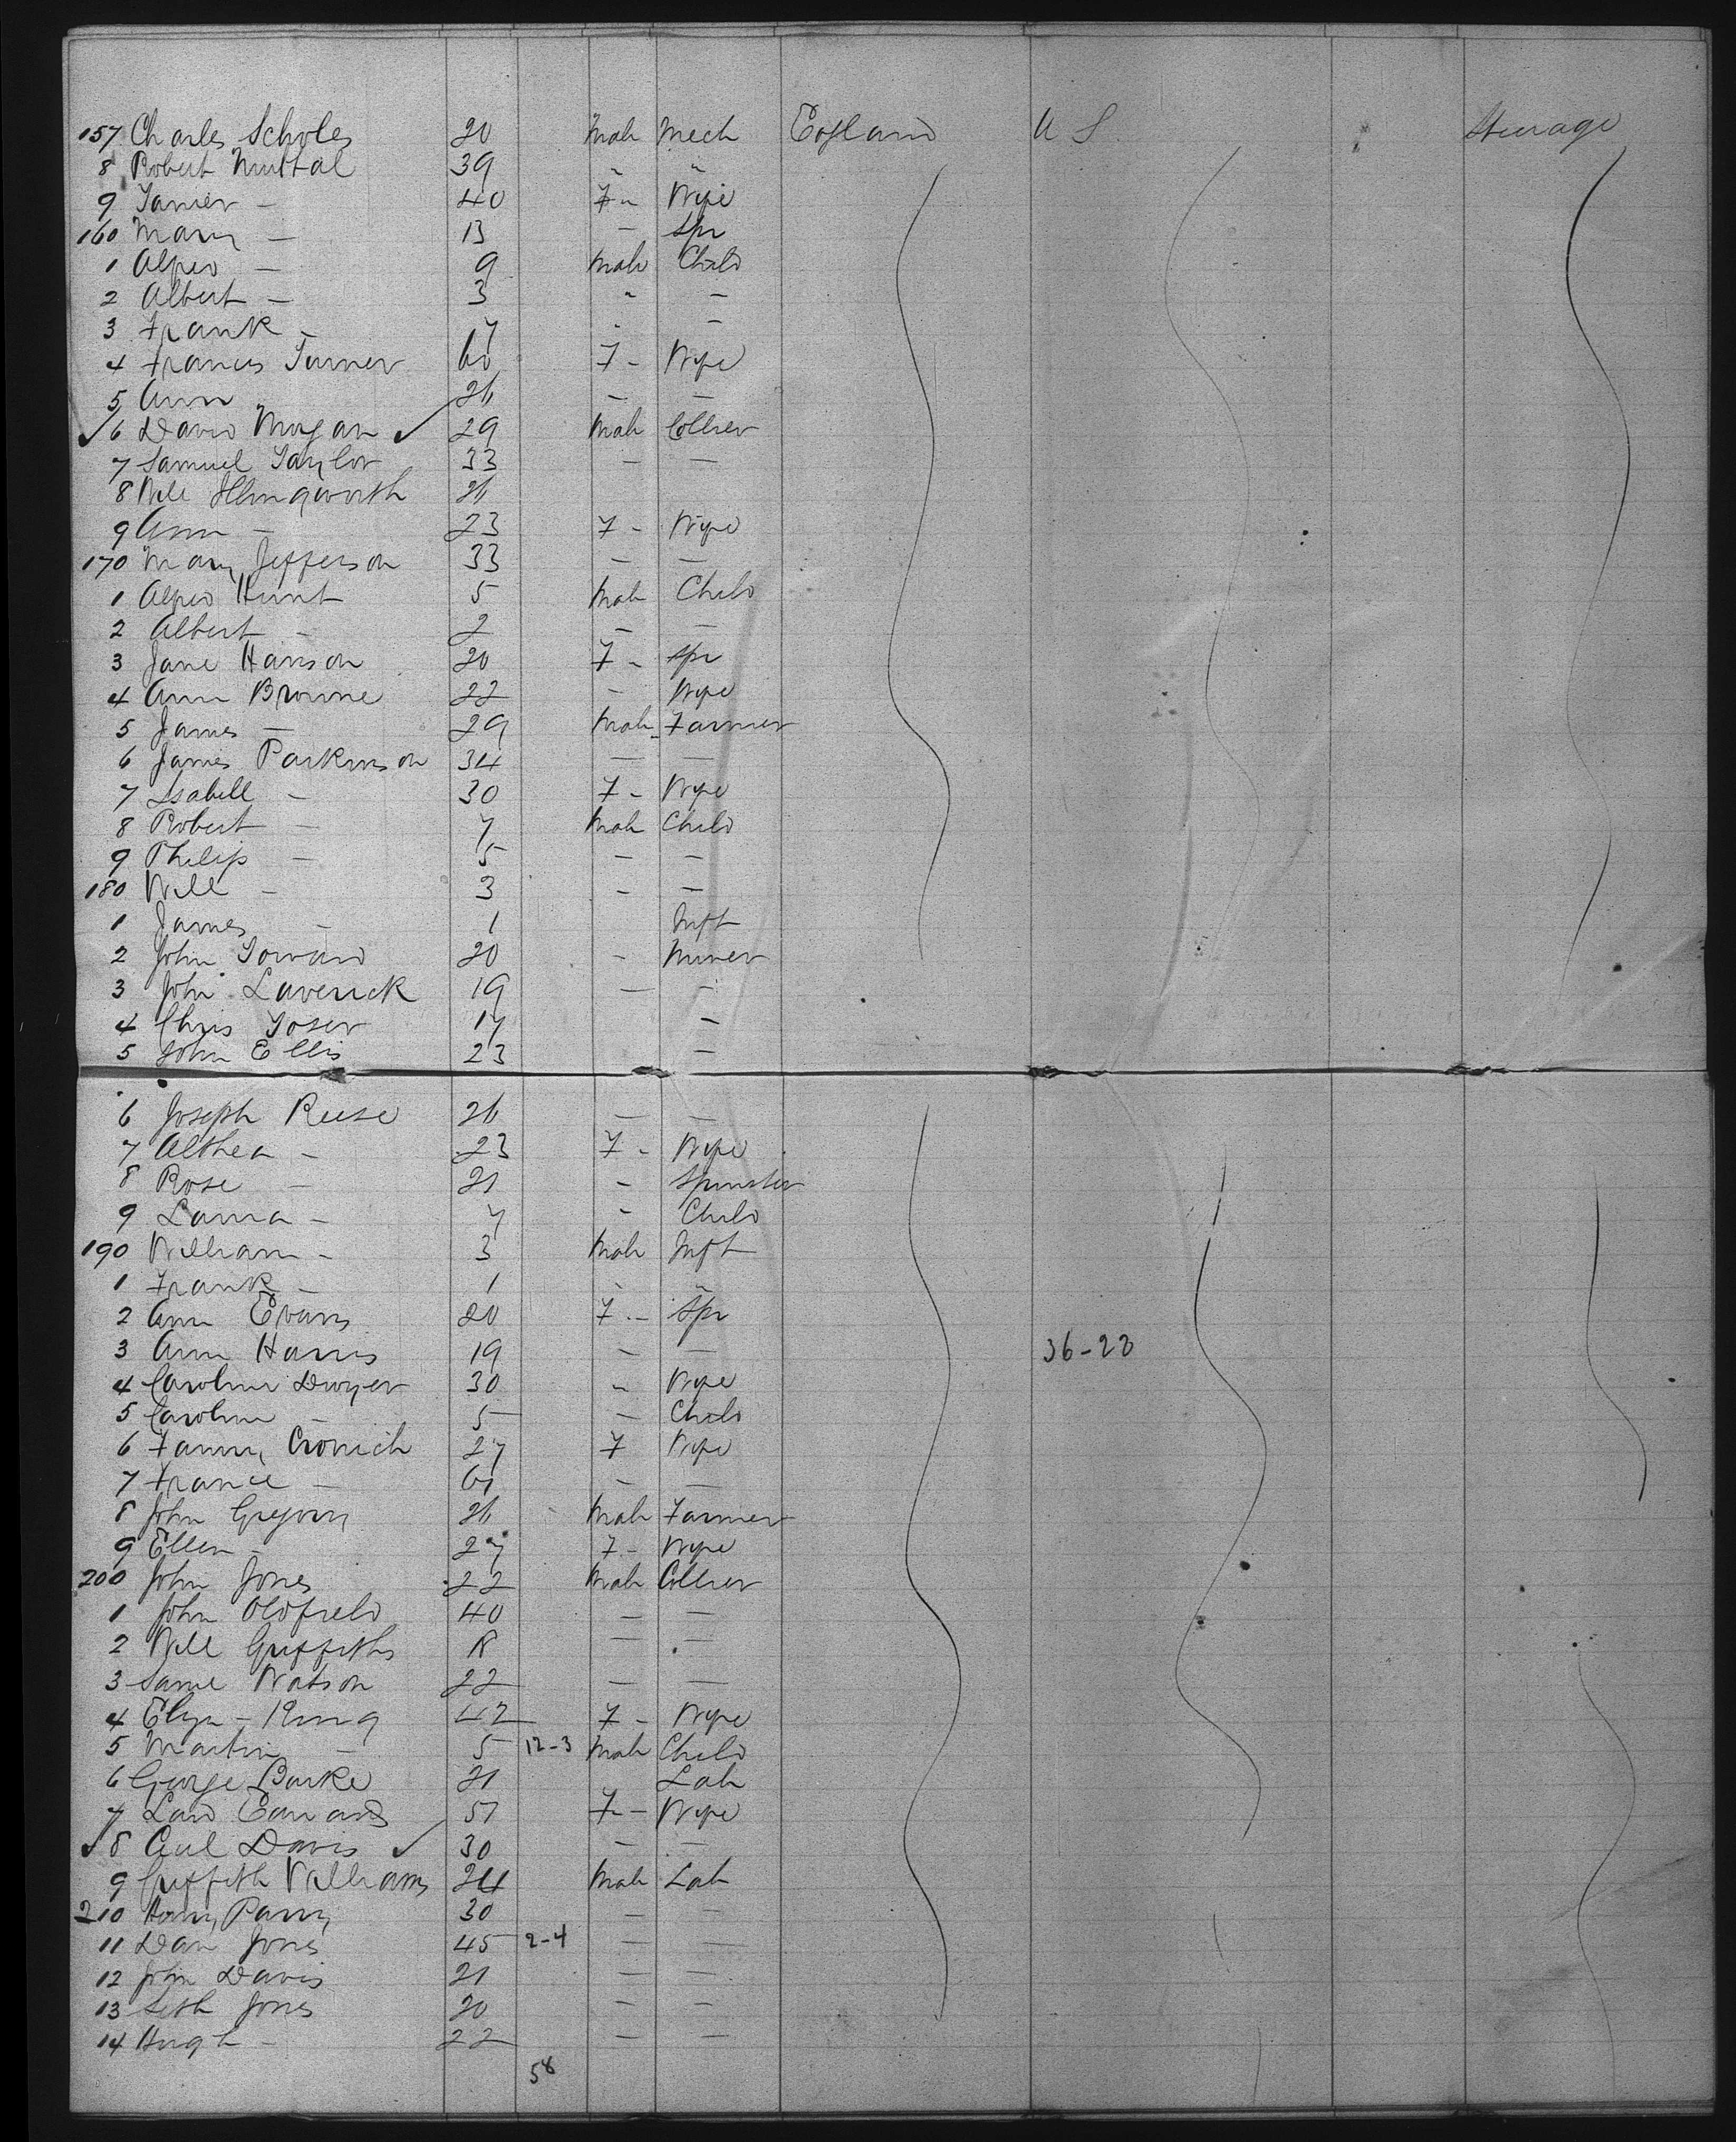 157 Charles Scholes 20 Male Mech England U S Steerage
8 Robert Nuttal 39 " "
9 40 F - Wife
160 Mary - 13 - Spr
1 Alfred - 9 Male Child
2 Albert - 3 " -
3 Frank - " -
4 Frances Turner 60 F - Wife
5 Ann 26 - -
6 David Morgan 29 Male Collier
7 Samuel Taylor 33 - -
8 Will Illingworth 26
9 Ann - 23 F - Wife
170 Mary Jefferson 33 - -
1 Alfred Hunt 5 Male Child
2 Albert - 2 - -
3 Jane 20 F - Spr
4 Ann Browne 22 - Wife
5 James - 29 Male Farmer
6 James Parkinson 34 - -
7 Isabell - 30 F - Wife
8 Robert - 7 Male Child
9 Philip - 5 - -
180 Will - 3 - -
1 James - 1 Inft
2 John 20 - Miner
3 John Laverick 19 - -
4 Chris -
5 John Ellis 23 -
6 Joseph Reese 26 - -
7 Althea - 23 F - Wife
8 Rose - 21 - Spinster
9 Laura - 7 - Child
190 William - 3 Male Inft
1 Frank - 1 " "
2 Ann Evans 20 F - Spr
3 Ann Harris 19 - - 36-23
4 Caroline Dwyer 30 " Wife
5 Caroline - 5 - Child
6 Fanny 27 F Wife
7 France - - -
8 John Gregory 26 Male Farmer
9 Ellen - 27 F - Wife
200 John Jones 22 Male Collier
1 John Oldfield 40 - -
2 Will Griffiths 18 - -
3 Watson 22 - -
4 King 42 F - Wife
5 Martin - 5 12-3 Male Child
6 George 21 Lab
7 51 F - Wife
8 Davis 30 - -
9 Griffith Williams 24 Male Lab
210 Parry 30 - -
11 Dan Jones 45 2-4 - -
12 John Davis 21 - -
13 Seth Jones 20 - -
14 Hugh - 22 - -
58